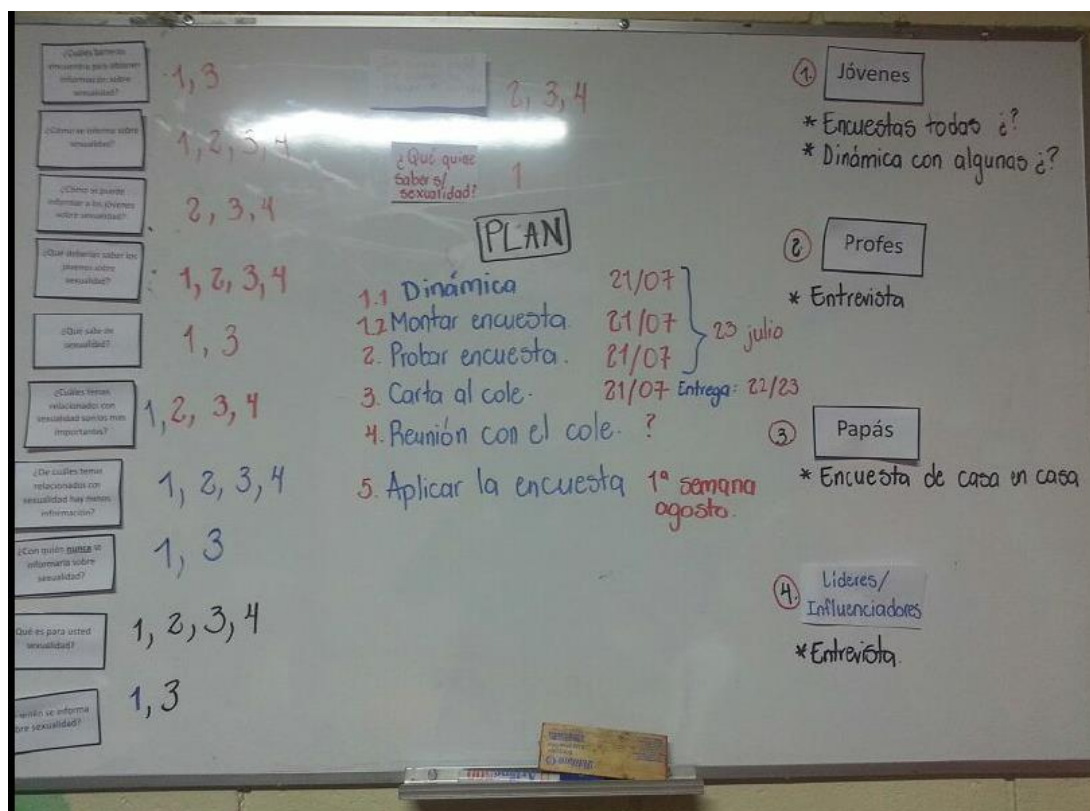 ¿Cuáles barreras
encuentra para obtener
información sobre
sexualidad?
1, 3
¿Cómo se informa sobre
sexualidad?
1, 2, 3, 4
¿Cómo se puede
informar a los jóvenes
sobre sexualidad?
2, 3, 4
¿Qué deberían saber los
jóvenes sobre
sexualidad?
1, 2, 3, 4
¿Qué sabe de
sexualidad?
1, 3
¿Cuáles temas
relacionados con
sexualidad son los más
importantes?
1, 2, 3, 4
¿De cuáles temas
relacionados con
sexualidad hay menos
información?
1, 2, 3, 4
¿Con quién nunca se
informaría sobre
sexualidad?
1, 3
Qué es para usted
sexualidad?
1, 2, 3, 4
se informa
sexualidad?
1, 3
2, 3, 4
¿Qué quiere
saber s/
sexualidad?
1
PLAN
1.1 Dinámica 21/07
1.2 Montar encuesta. 21/07
2. Probar encuesta. 21/07
23 julio
3. Carta al cole. 21/07 Entrega: 22/23
4. Reunión con el cole. ?
5. Aplicar la encuesta 1ª semana
agosto.
1. Jóvenes
* Encuestas todas ¿?
* Dinámica con algunas ¿?
2 Profes
* Entrevista
3 Papás
* Encuesta de casa en casa
4. Líderes/
Influenciadores
* Entrevista.